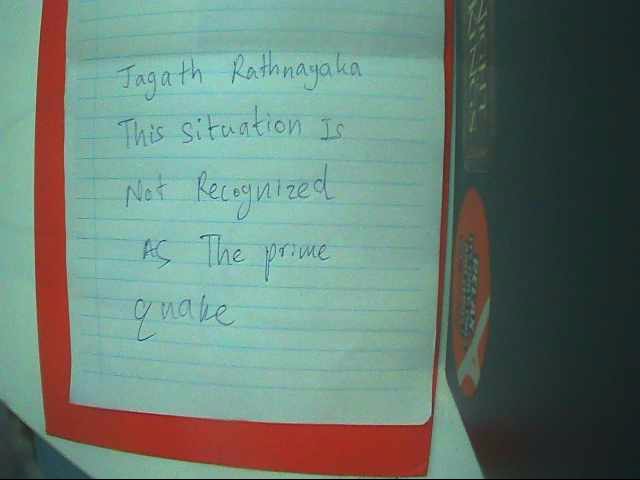 Jagath Rathnayaka
This situation Is
Not Recognized
As The prime
quake